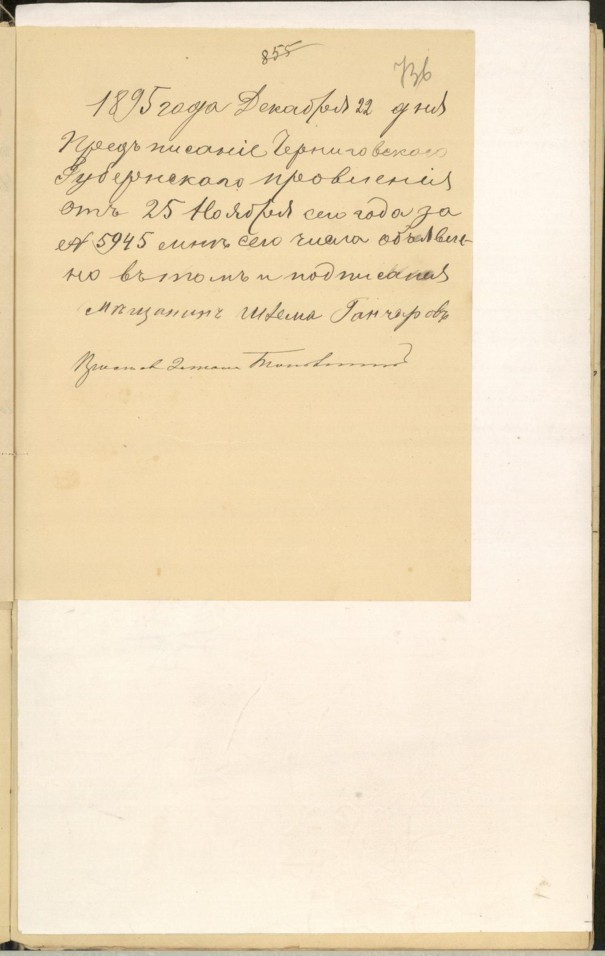 855
736
1895 года Декабря 22 дня
Предъписаніе Черниговского
Губернского провленія
отъ 25 Ноября сего года за
№ 5945 мнѣ сего числа объявле-
но въ томъ и подписался
мѣщанинъ Шлема Ганчаровъ
Приставъ